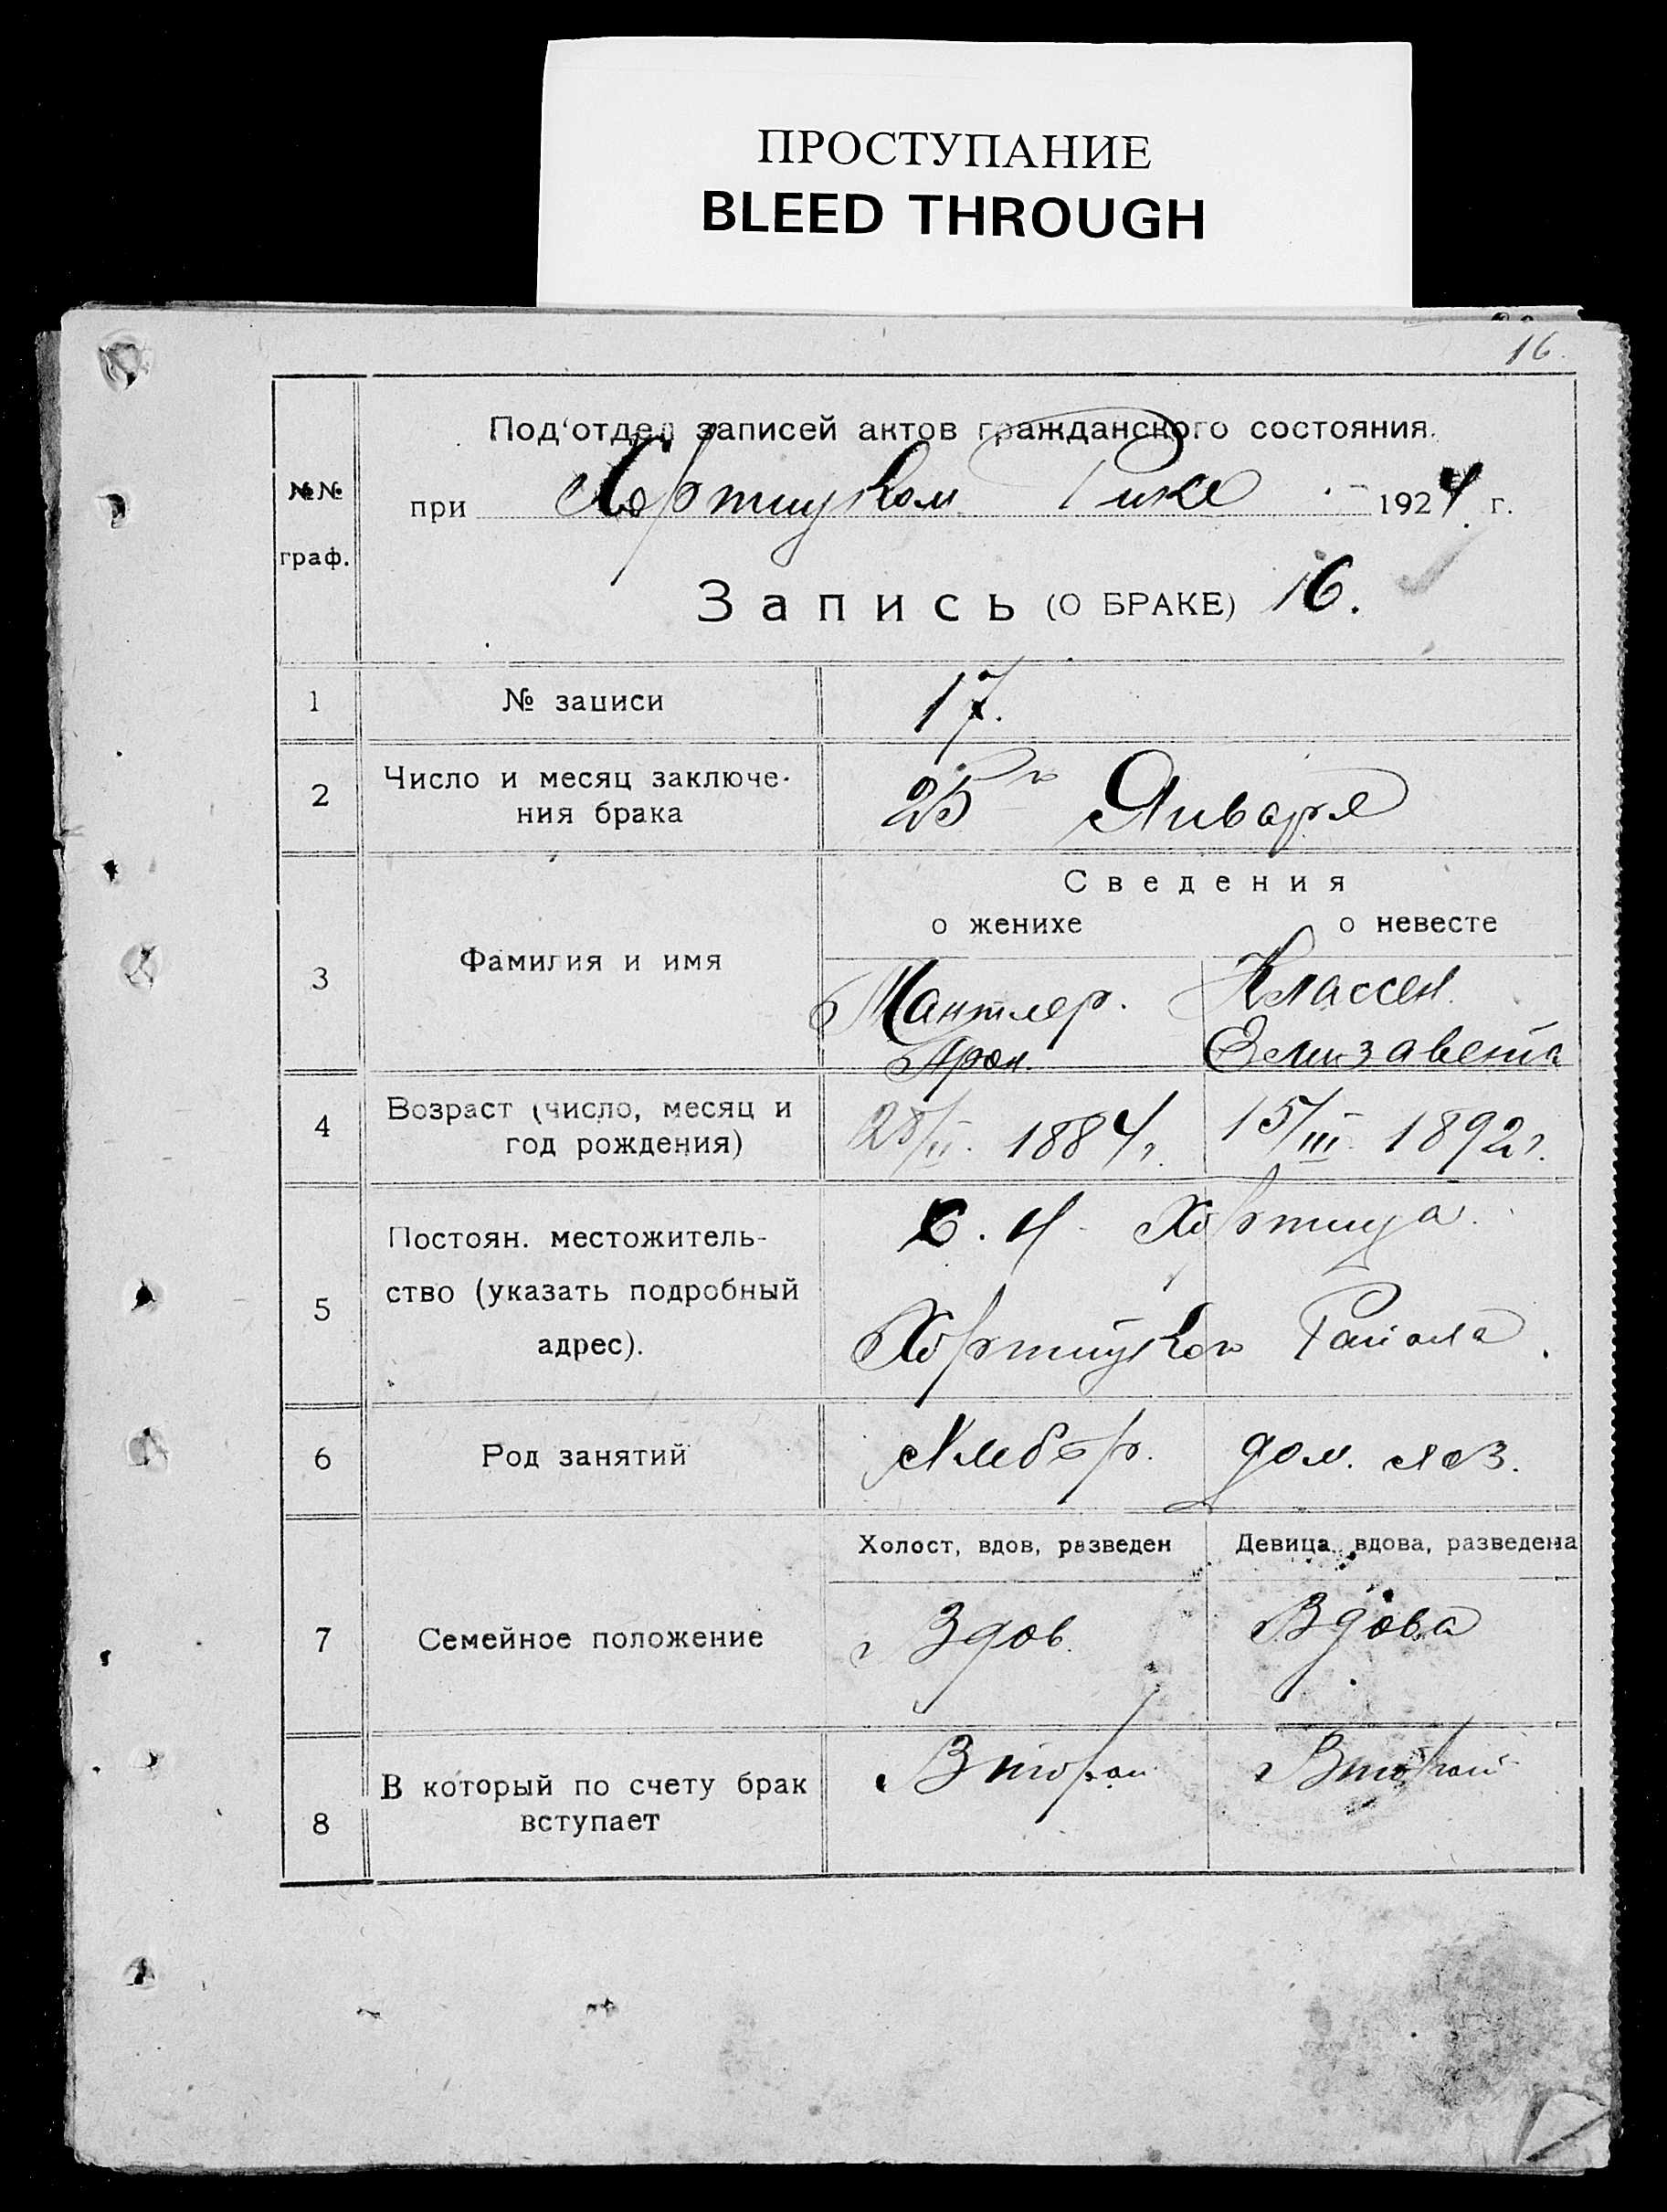 ПРОСТУПАНИЕ
BLEED THROUGH
16.
Под'отдел записей актов гражданского состояния.
№№ граф.
при Хортицком Рике 1924 г.
Запись (О БРАКЕ) 16.
1 № записи 17.
2 Число и месяц заключе-
ния брака 25го Января
Сведения
о женихе о невесте
3 Фамилия и имя Мантлер. Классен.
Арон. Елизавета
4 Возраст (число, месяц и
год рождения) 28/II. 1884 г. 15/III 1892 г.
5 Постоян. местожитель-
ство (указать подробный
адрес).
С. Н. Хортица.
Хортицкого Района.
6 Род занятий Хлебор. дом. хоз.
Холост, вдов, разведен Девица, вдова, разведена
7 Семейное положение Вдов. Вдова
8 В который по счету брак
вступает Второй Второй